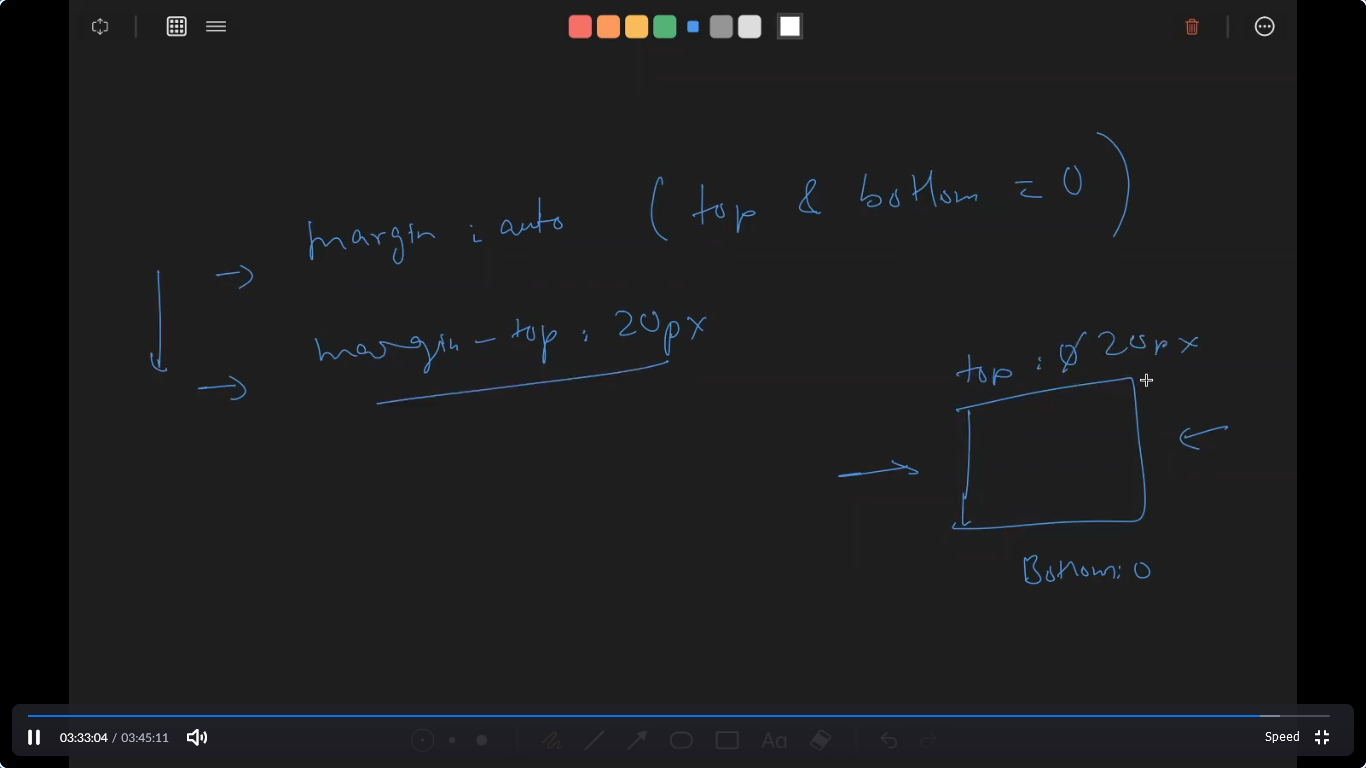 margin : auto ( top & bottom = 0 )
margin - top : 20px
top : 0 20px
Bottom: 0
03:33:04 / 03:45:11
Speed
Aa